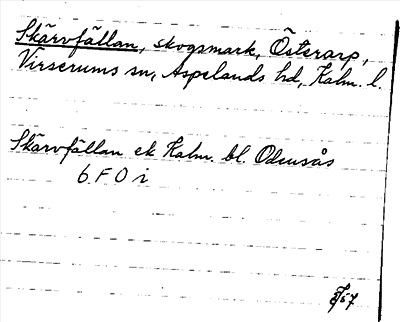 Skärvfällan, skogsmark, Österarp,
Virserums sn, Aspelands hd, Kalm. l.
Skärvfällan ek Kalm. bl. Odensås
6 F O i